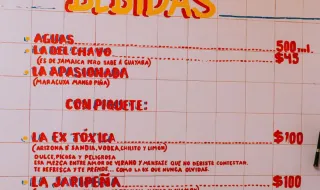 BEBIDAS
AGUAS 500ml
LA DEL CHAVO $45
(ES DE JAMAICA PERO SABE A GUAYABA)
LA APASIONADA
(MARACUYA MANGO PIÑA)
CON PIQUETE:
LA EX TÓXICA $100
(ARIZONA SANDIA, VODKA, CHILITO Y LIMON)
DULCE, PICOSA Y PELIGROSA
ESA MEZCLA ENTRE AMOR DE VERANO Y MENSAJE QUE NO DEBISTE CONTESTAR.
TE REFRESCA Y TE PRENDE... COMO LA EX QUE NUNCA OLVIDAS.
LA JARIPEÑA $100